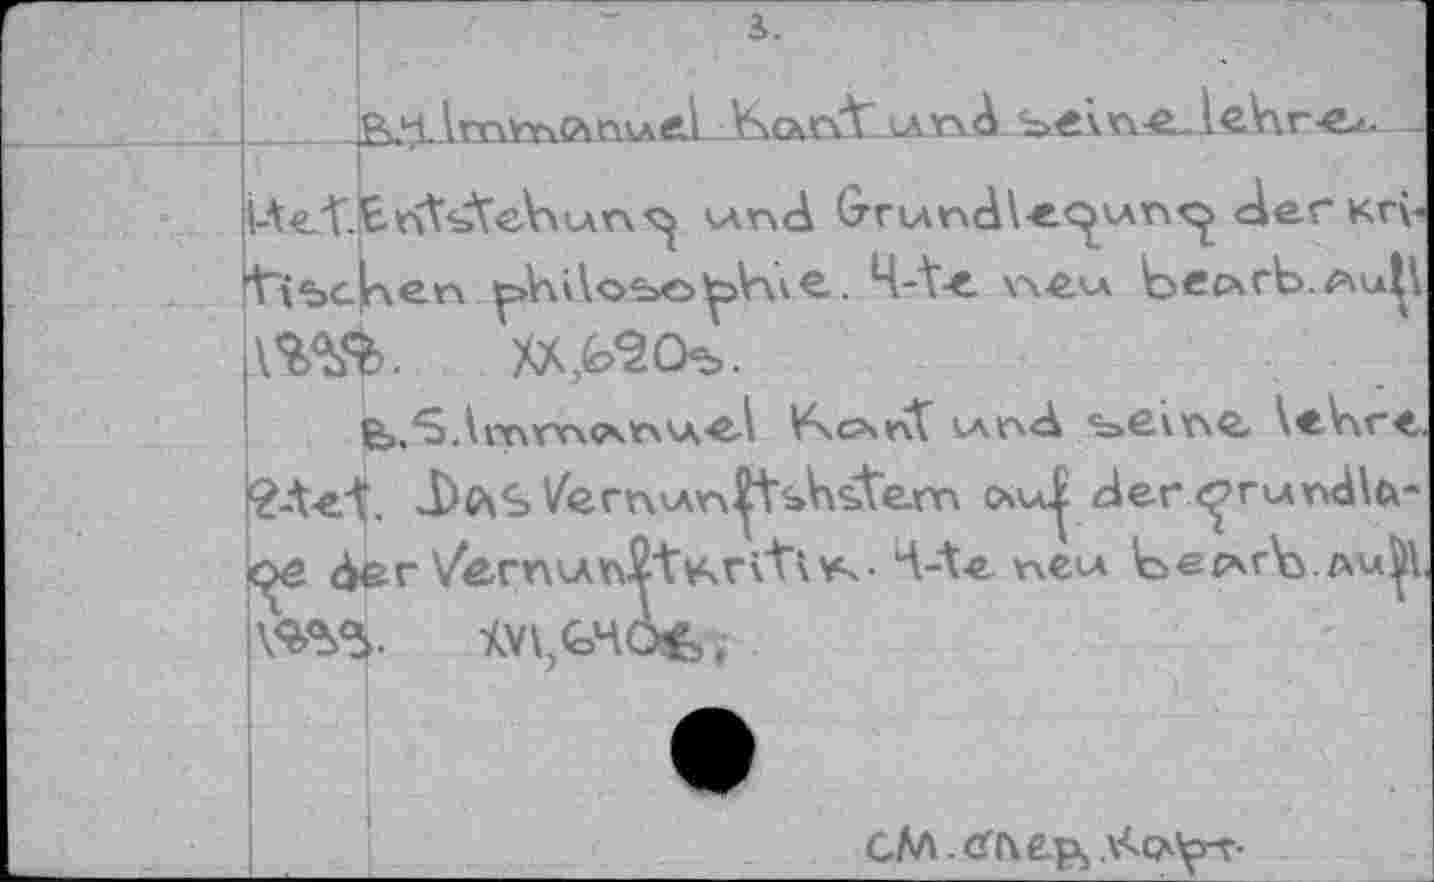 3.
B.4. Immanuel Kant und seine lehre.
1-te.T. Entstehung und Grundlegung der kri-
tischen philosophie. 4-te neu bearb. aufl.
1898. XX, 620s.
B.5. Immanuel Kant und seine lehre.
2-tet. Das Vernunftshstem auf der grundla-
ge der Vernunftkritik. 4-te neu bearb. aufl.
XVI, 640s.
см. след. карт.